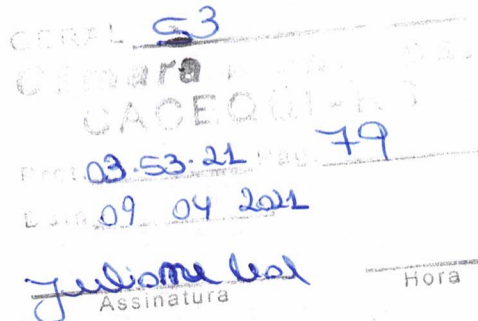 GERAL 53
Câmara
CACEQUI-RS
Prot. 03.53.21 Pag. 79
Data 09 04 2021
Juliane Leal
Assinatura Hora